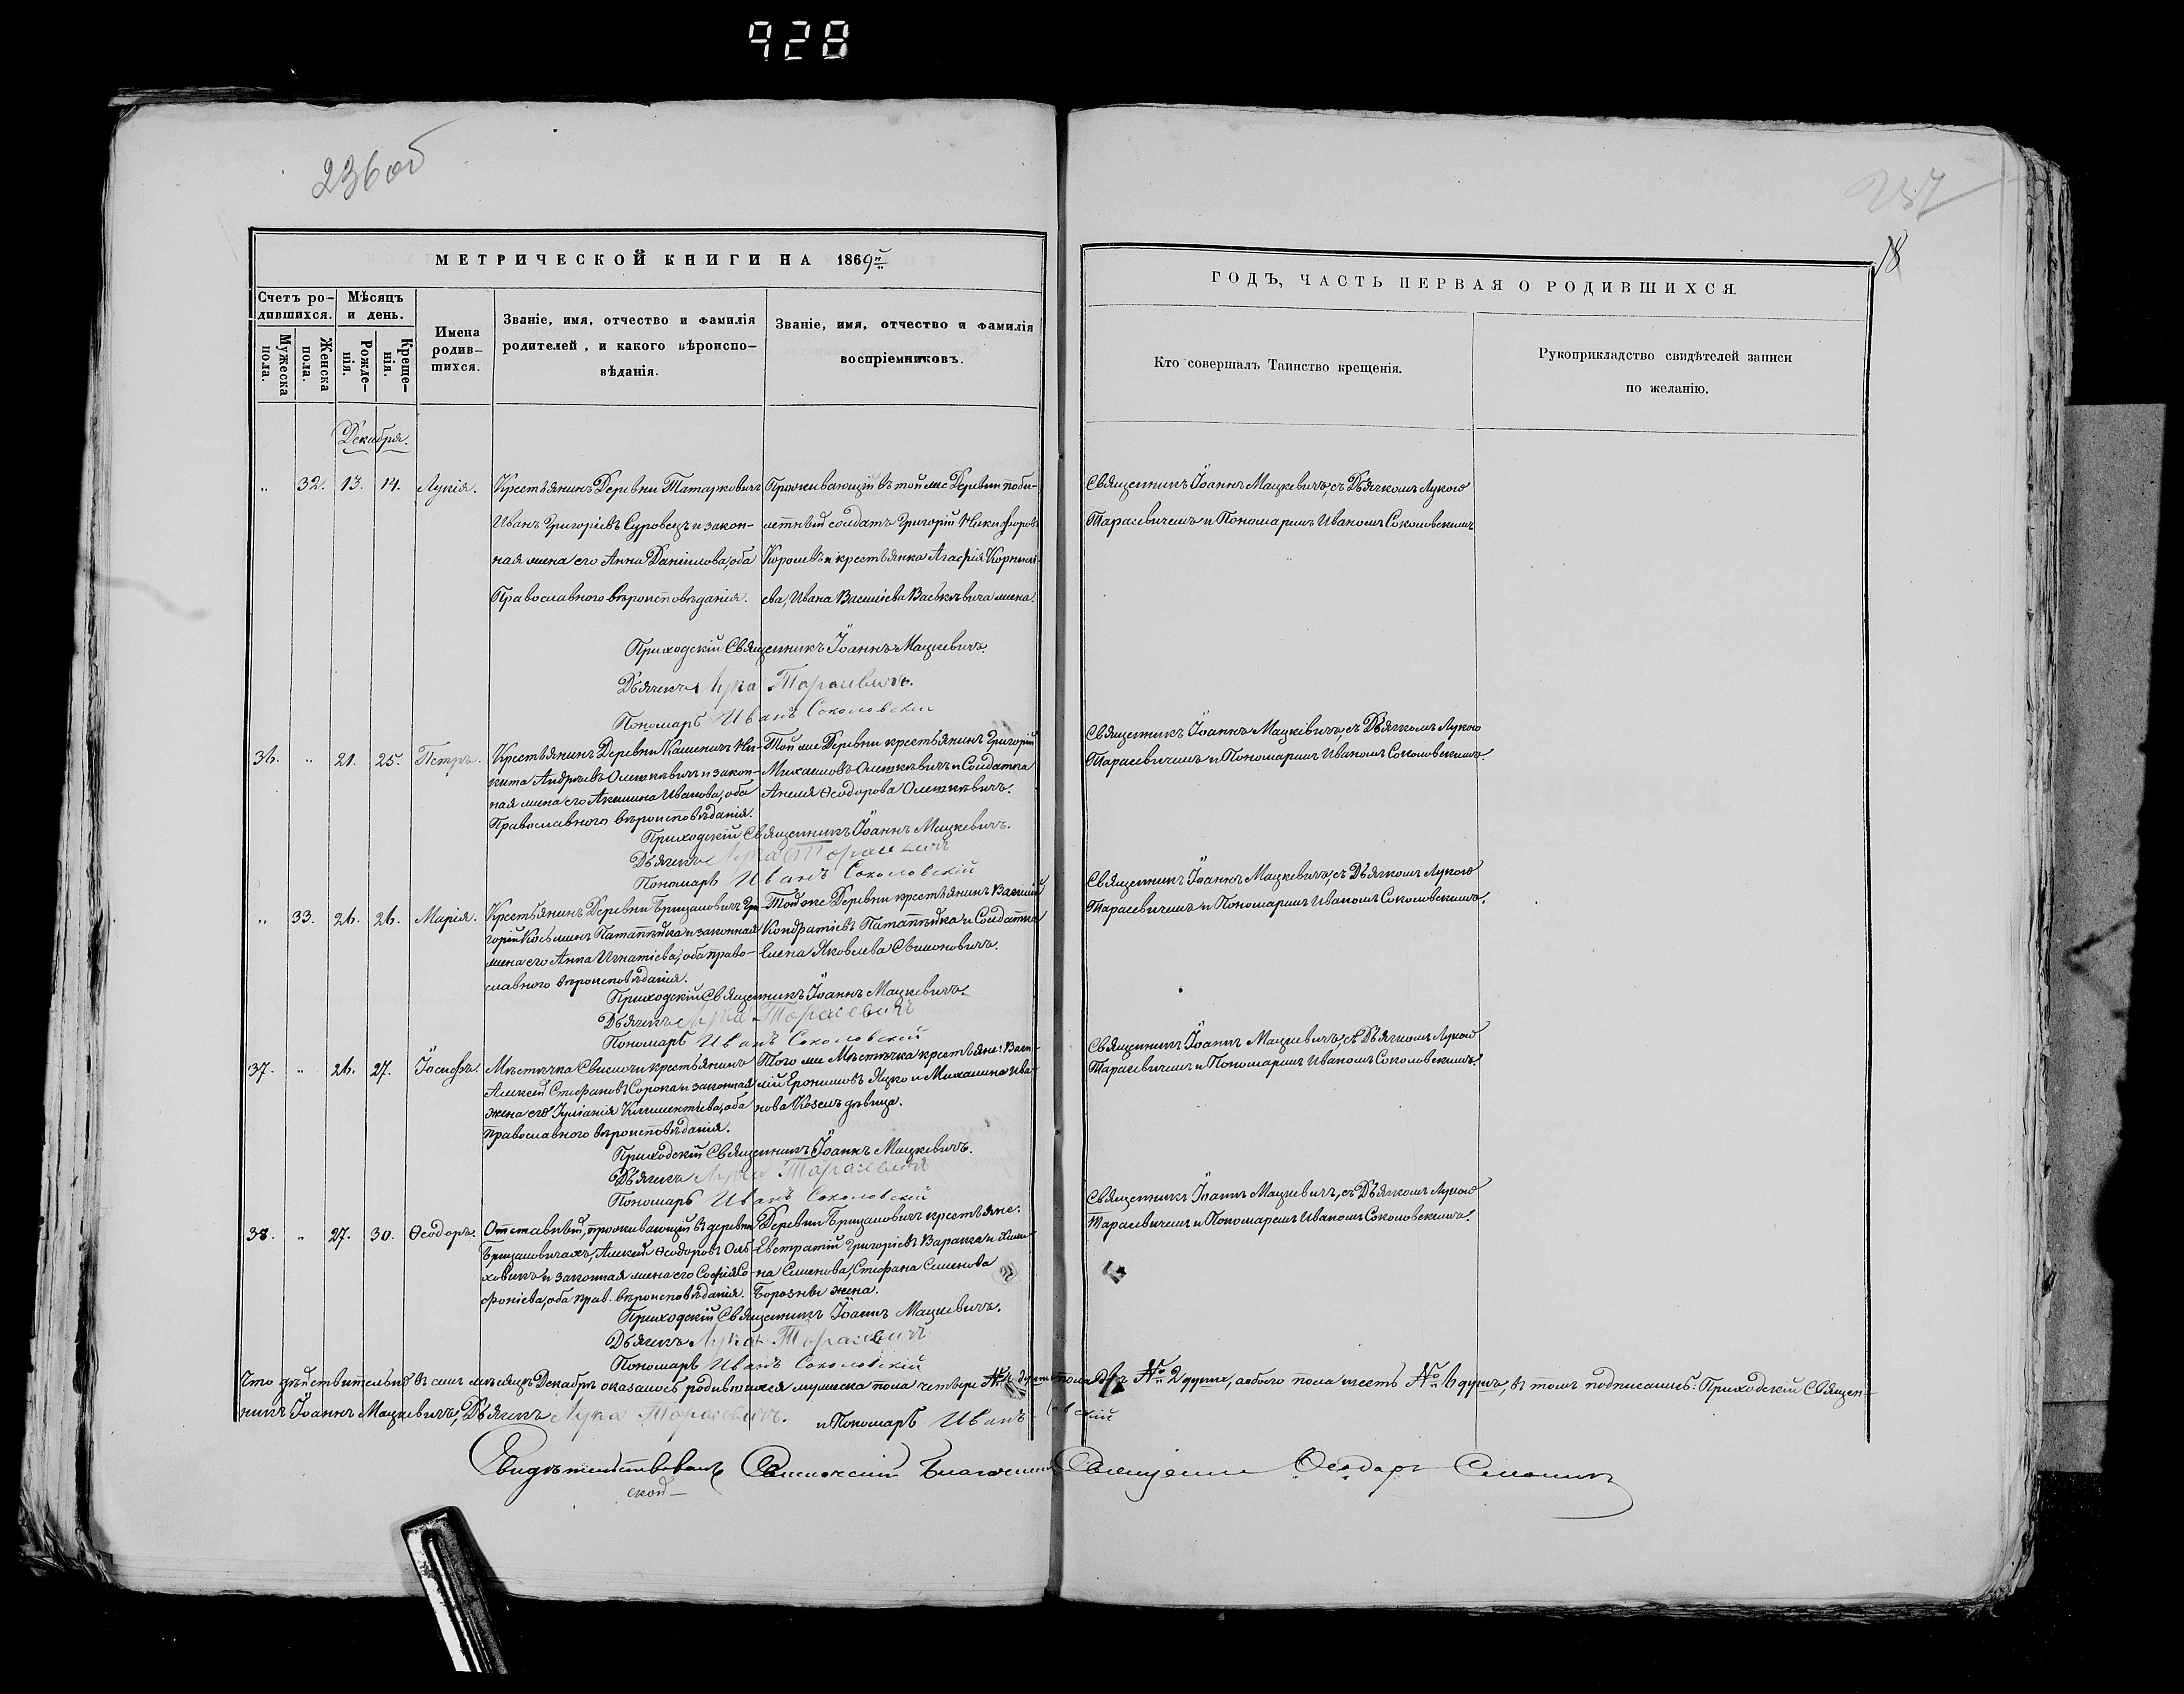 928
236об
237
18
МЕТРИЧЕСКОЙ КНИГИ НА 1869й
ГОДЪ, ЧАСТЬ ПЕРВАЯ О РОДИВШИХСЯ
Счетъ ро-
дившихся.
Мужеска
пола.
Женска
пола.
Мѣсяцъ
и день.
Рожде-
нія.
Креще-
нія.
Имена
родив-
шихся.
Званіе, имя, отчество и фамилія
родителей, и какого вѣроиспо-
вѣданія.
Званіе, имя, отчество и фамилія
воспріемниковъ.
Кто совершалъ Таинство крещенія.
Рукоприкладство свидѣтелей записи
по желанію.
Декабря.
„ 32. 13. 14. Лукія.
Крестьянинъ Деревни Татарковичъ
Иванъ Григоріевъ Суровецъ и закон-
ная жена его Анна Даніилова, оба
Православнаго вѣроисповѣданія.
Проживающій въ той же Деревни
солдатъ Григорій Никифоровъ
Королевъ и крестьянка Агафія Корнилі-
ева, Ивана Василіева Васькевича жена.
Священникъ Іоаннъ Мацкевичъ, съ Дьячкомъ Лукою
Тарасевичемъ и Пономаремъ Иваномъ Соколовскимъ
Приходскій Священникъ Іоаннъ Мацкевичъ.
Дьячекъ Лука Тарасевичъ.
Пономарь Иванъ Соколовскій
36. „ 21. 25. Петръ.
Крестьянинъ Деревни Каменичъ Ни-
кита Андреевъ Олешкевичъ и закон-
ная жена его Акилина Иванова, оба
Православнаго вѣроисповѣданія.
Той же Деревни крестьянинъ Григорій
Михаиловъ Олешкевичъ и Солдатка
Анелія Ѳеодорова Олешкевичъ.
Священникъ Іоаннъ Мацкевичъ, съ Дьячкомъ Лукою
Тарасевичемъ и Пономаремъ Иваномъ Соколовскимъ.
Приходскій Священникъ Іоаннъ Мацкевичъ.
Дьячекъ Лука Тарасевичъ
Пономарь Иванъ Соколовскій
„ 33. 26. 26. Марія.
Крестьянинъ Деревни Брицаловичъ Гри-
горій Косьминъ Патапѣйка и законная
жена его Анна Игнатіева, оба право-
славнаго вѣроисповѣданія.
Той же Деревни крестьянинъ Василій
Кондратіевъ Патапѣйка и Солдатка
Елена Яковлева Свимоновичъ.
Священникъ Іоаннъ Мацкевичъ, съ Дьячкомъ Лукою
Тарасевичемъ и Пономаремъ Иваномъ Соколовскимъ.
Приходскій Священникъ Іоаннъ Мацкевичъ.
Дьячекъ Лука Тарасевичъ
Пономарь Иванъ Соколовскій
37. „ 26. 27. Іосифъ.
Мѣстечка Свислочи крестьянинъ
Алексѣй Стефановъ Сорока и законная
жена его Іуліанія Климентіева, оба
православнаго вѣроисповѣданія.
Того же Мѣстечка крестьяне: Васи-
лій Еронимовъ Яцко и Михалина Ива-
нова Козелъ дѣвица.
Священникъ Іоаннъ Мацкевичъ, съ Дьячкомъ Лукою
Тарасевичемъ и Пономаремъ Иваномъ Соколовскимъ.
Приходскій Священникъ Іоаннъ Мацкевичъ.
Дьячекъ Лука Тарасевичъ
Пономарь Иванъ Соколовскій
38. „ 27. 30. Ѳеодоръ.
Отставный, проживающій въ деревни
Брицаловичахъ, Алексѣй Ѳеодоровъ Оль-
ховикъ и законная жена его Софія Со-
фоніева, оба прав. вѣроисповѣданія.
Деревни Брицаловичъ крестьяне:
Евстратій Григоріевъ Варанка и
на Семенова, Стефана Семенова
Борозны жена.
Священникъ Іоаннъ Мацкевичъ, съ Дьячкомъ Лукою
Тарасевичемъ и Пономаремъ Иваномъ Соколовскимъ.
Приходскій Священникъ Іоаннъ Мацкевичъ.
Дьячекъ Лука Тарасевичъ
Пономарь Иванъ Соколовскій
Что дѣйствительно въ семъ мѣсяцѣ Декабрѣ оказалось родившихся мужеска пола четыре № 2 души, а обоего пола шесть № 6 душъ, въ томъ подписались: Приходскій Священ-
никъ Іоаннъ Мацкевичъ, Дьячекъ Лука Тарасевичъ. и Пономарь Иванъ
Свидѣтельствовалъ Свислочскій Благочинный Священникъ Ѳеодоръ